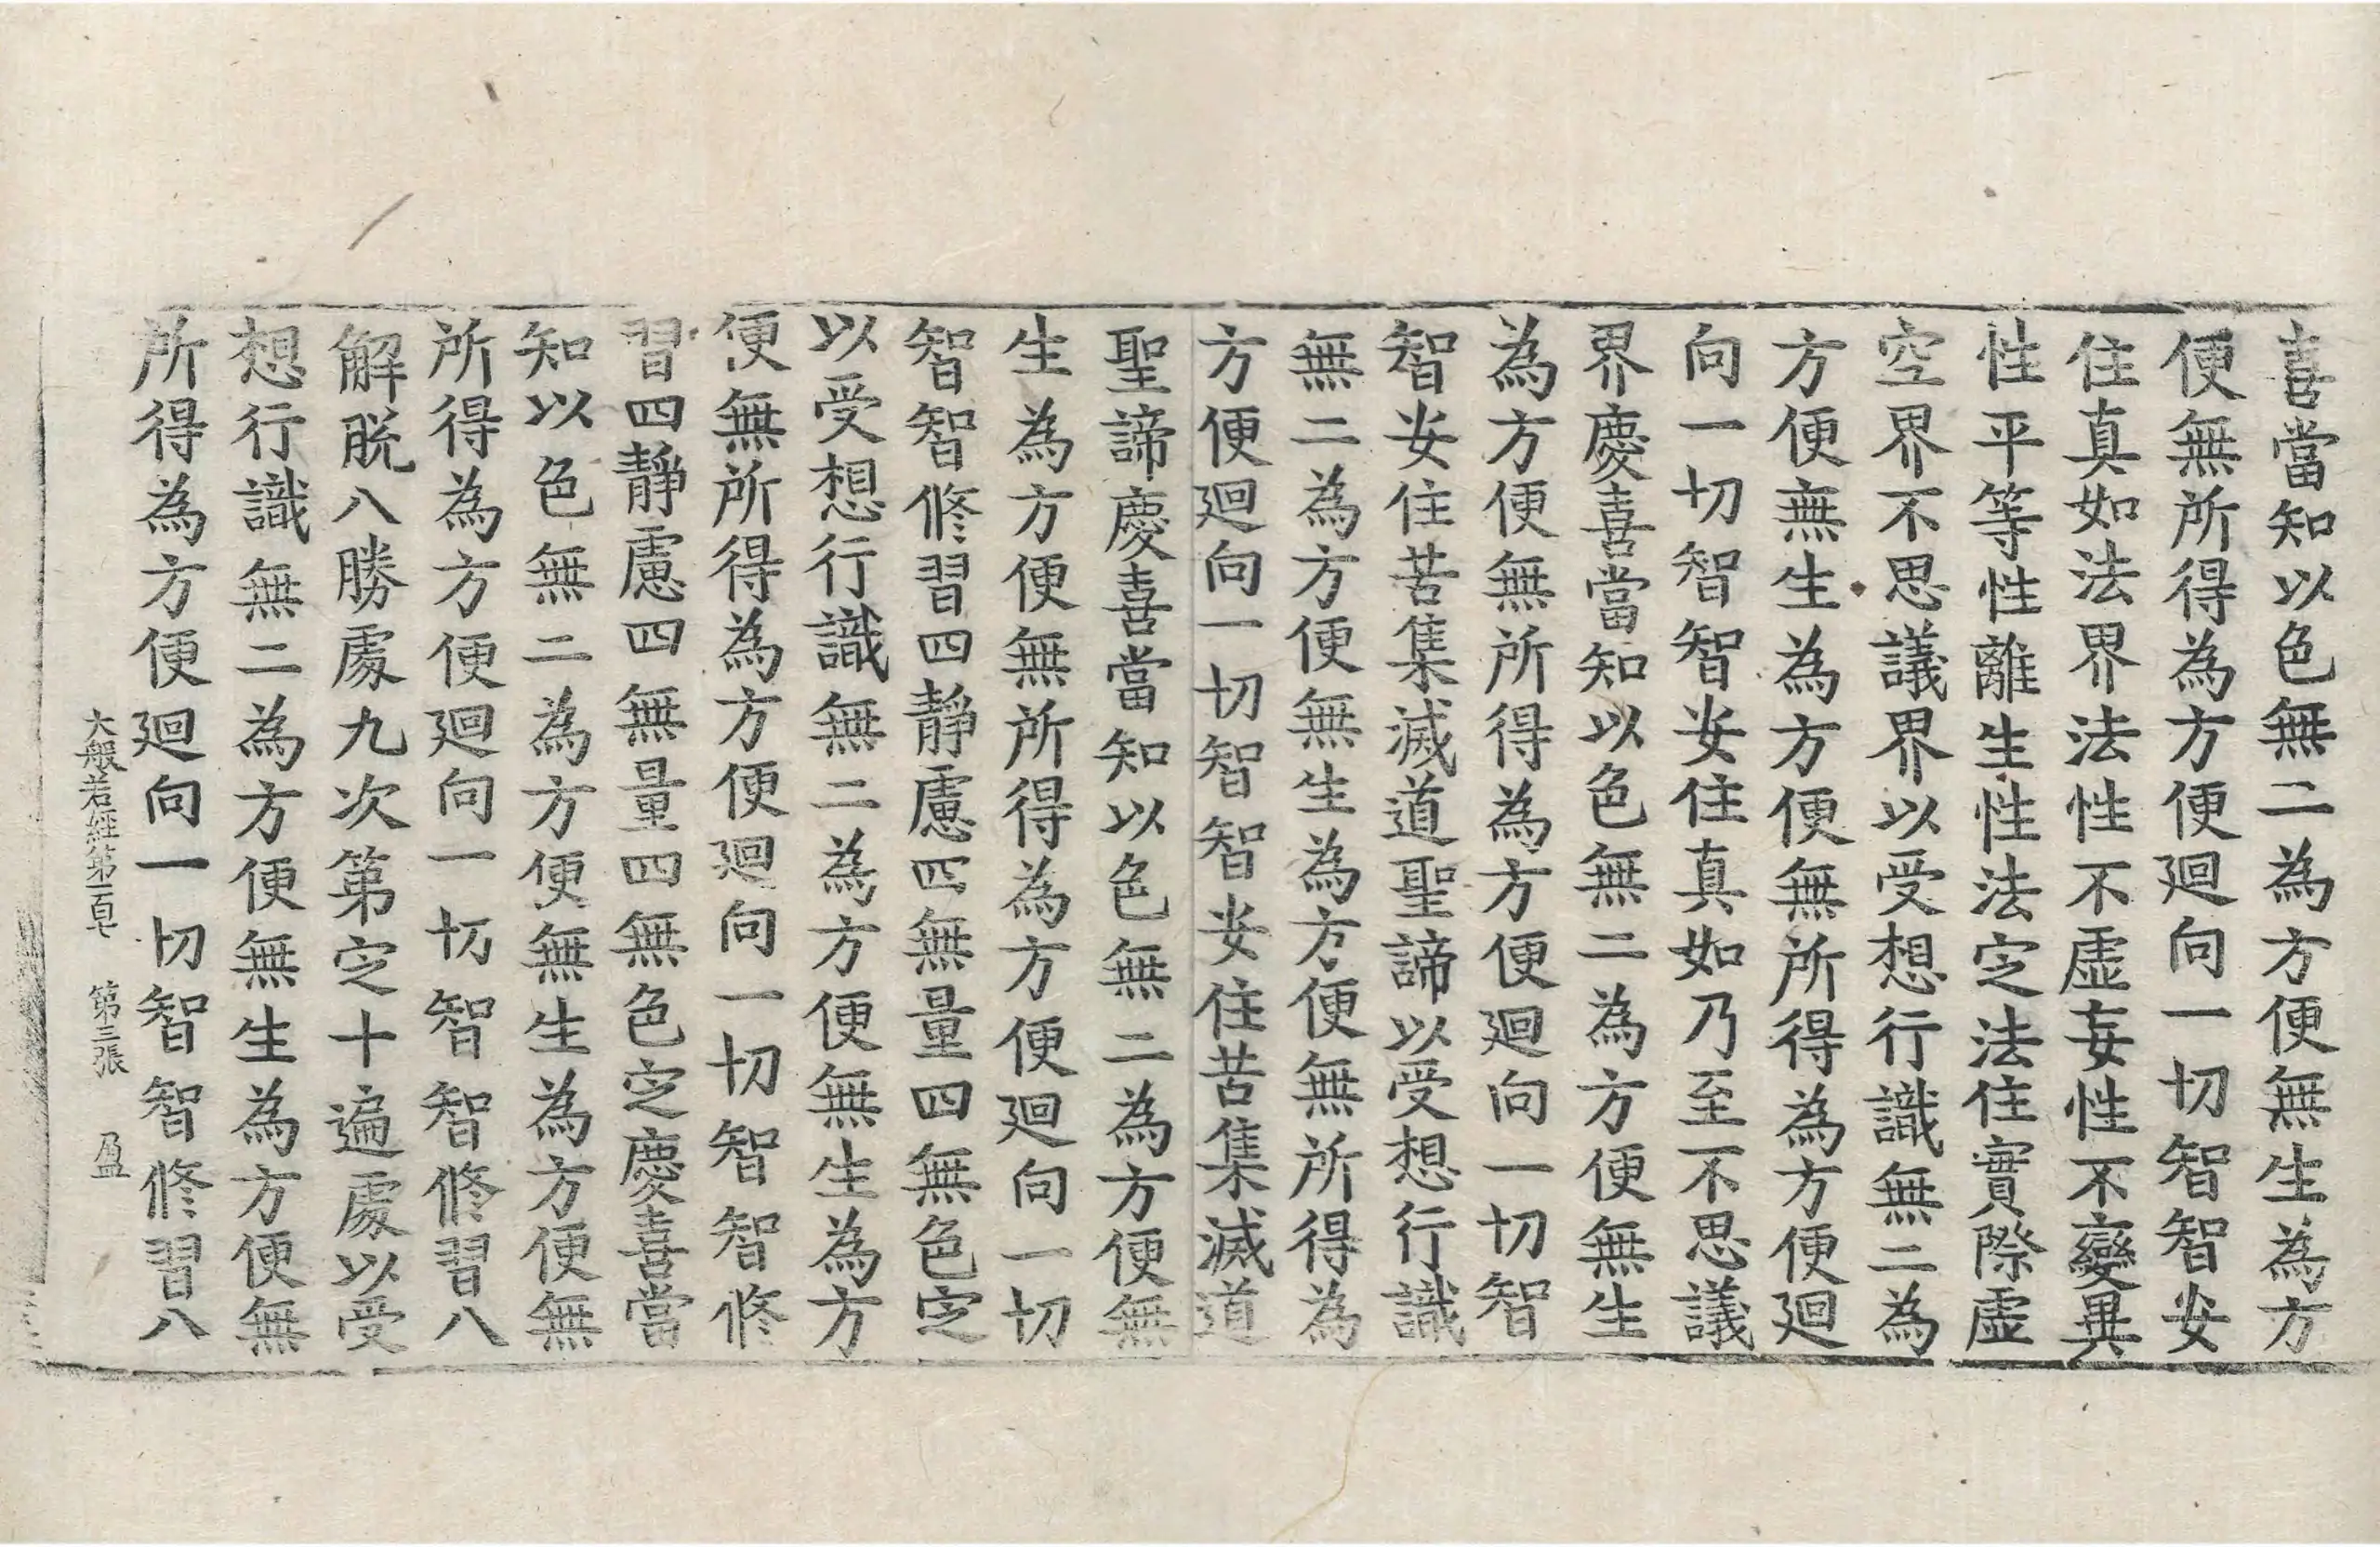 喜當知以色無二為方便無生為方
便無所得為方便廻向一切智智安
住真如法界法性不虛妄性不變異
性平等性離生性法定法住實際虛
空界不思議界以受想行識無二為
方便無生為方便無所得為方便廻
向一切智智安住真如乃至不思議
界慶喜當知以色無二為方便無生
為方便無所得為方便廻向一切智
智安住苦集滅道聖諦以受想行識
無二為方便無生為方便無所得為
方便廻向一切智智安住苦集滅道
聖諦慶喜當知以色無二為方便無
生為方便無所得為方便廻向一切
智智修習四靜慮四無量四無色定
以受想行識無二為方便無生為方
便無所得為方便廻向一切智智修
習四靜慮四無量四無色定慶喜當
知以色無二為方便無生為方便無
所得為方便廻向一切智智修習八
解脫八勝處九次第定十遍處以受
想行識無二為方便無生為方便無
所得為方便廻向一切智智修習八
大般若經第一百七 第三張 盈